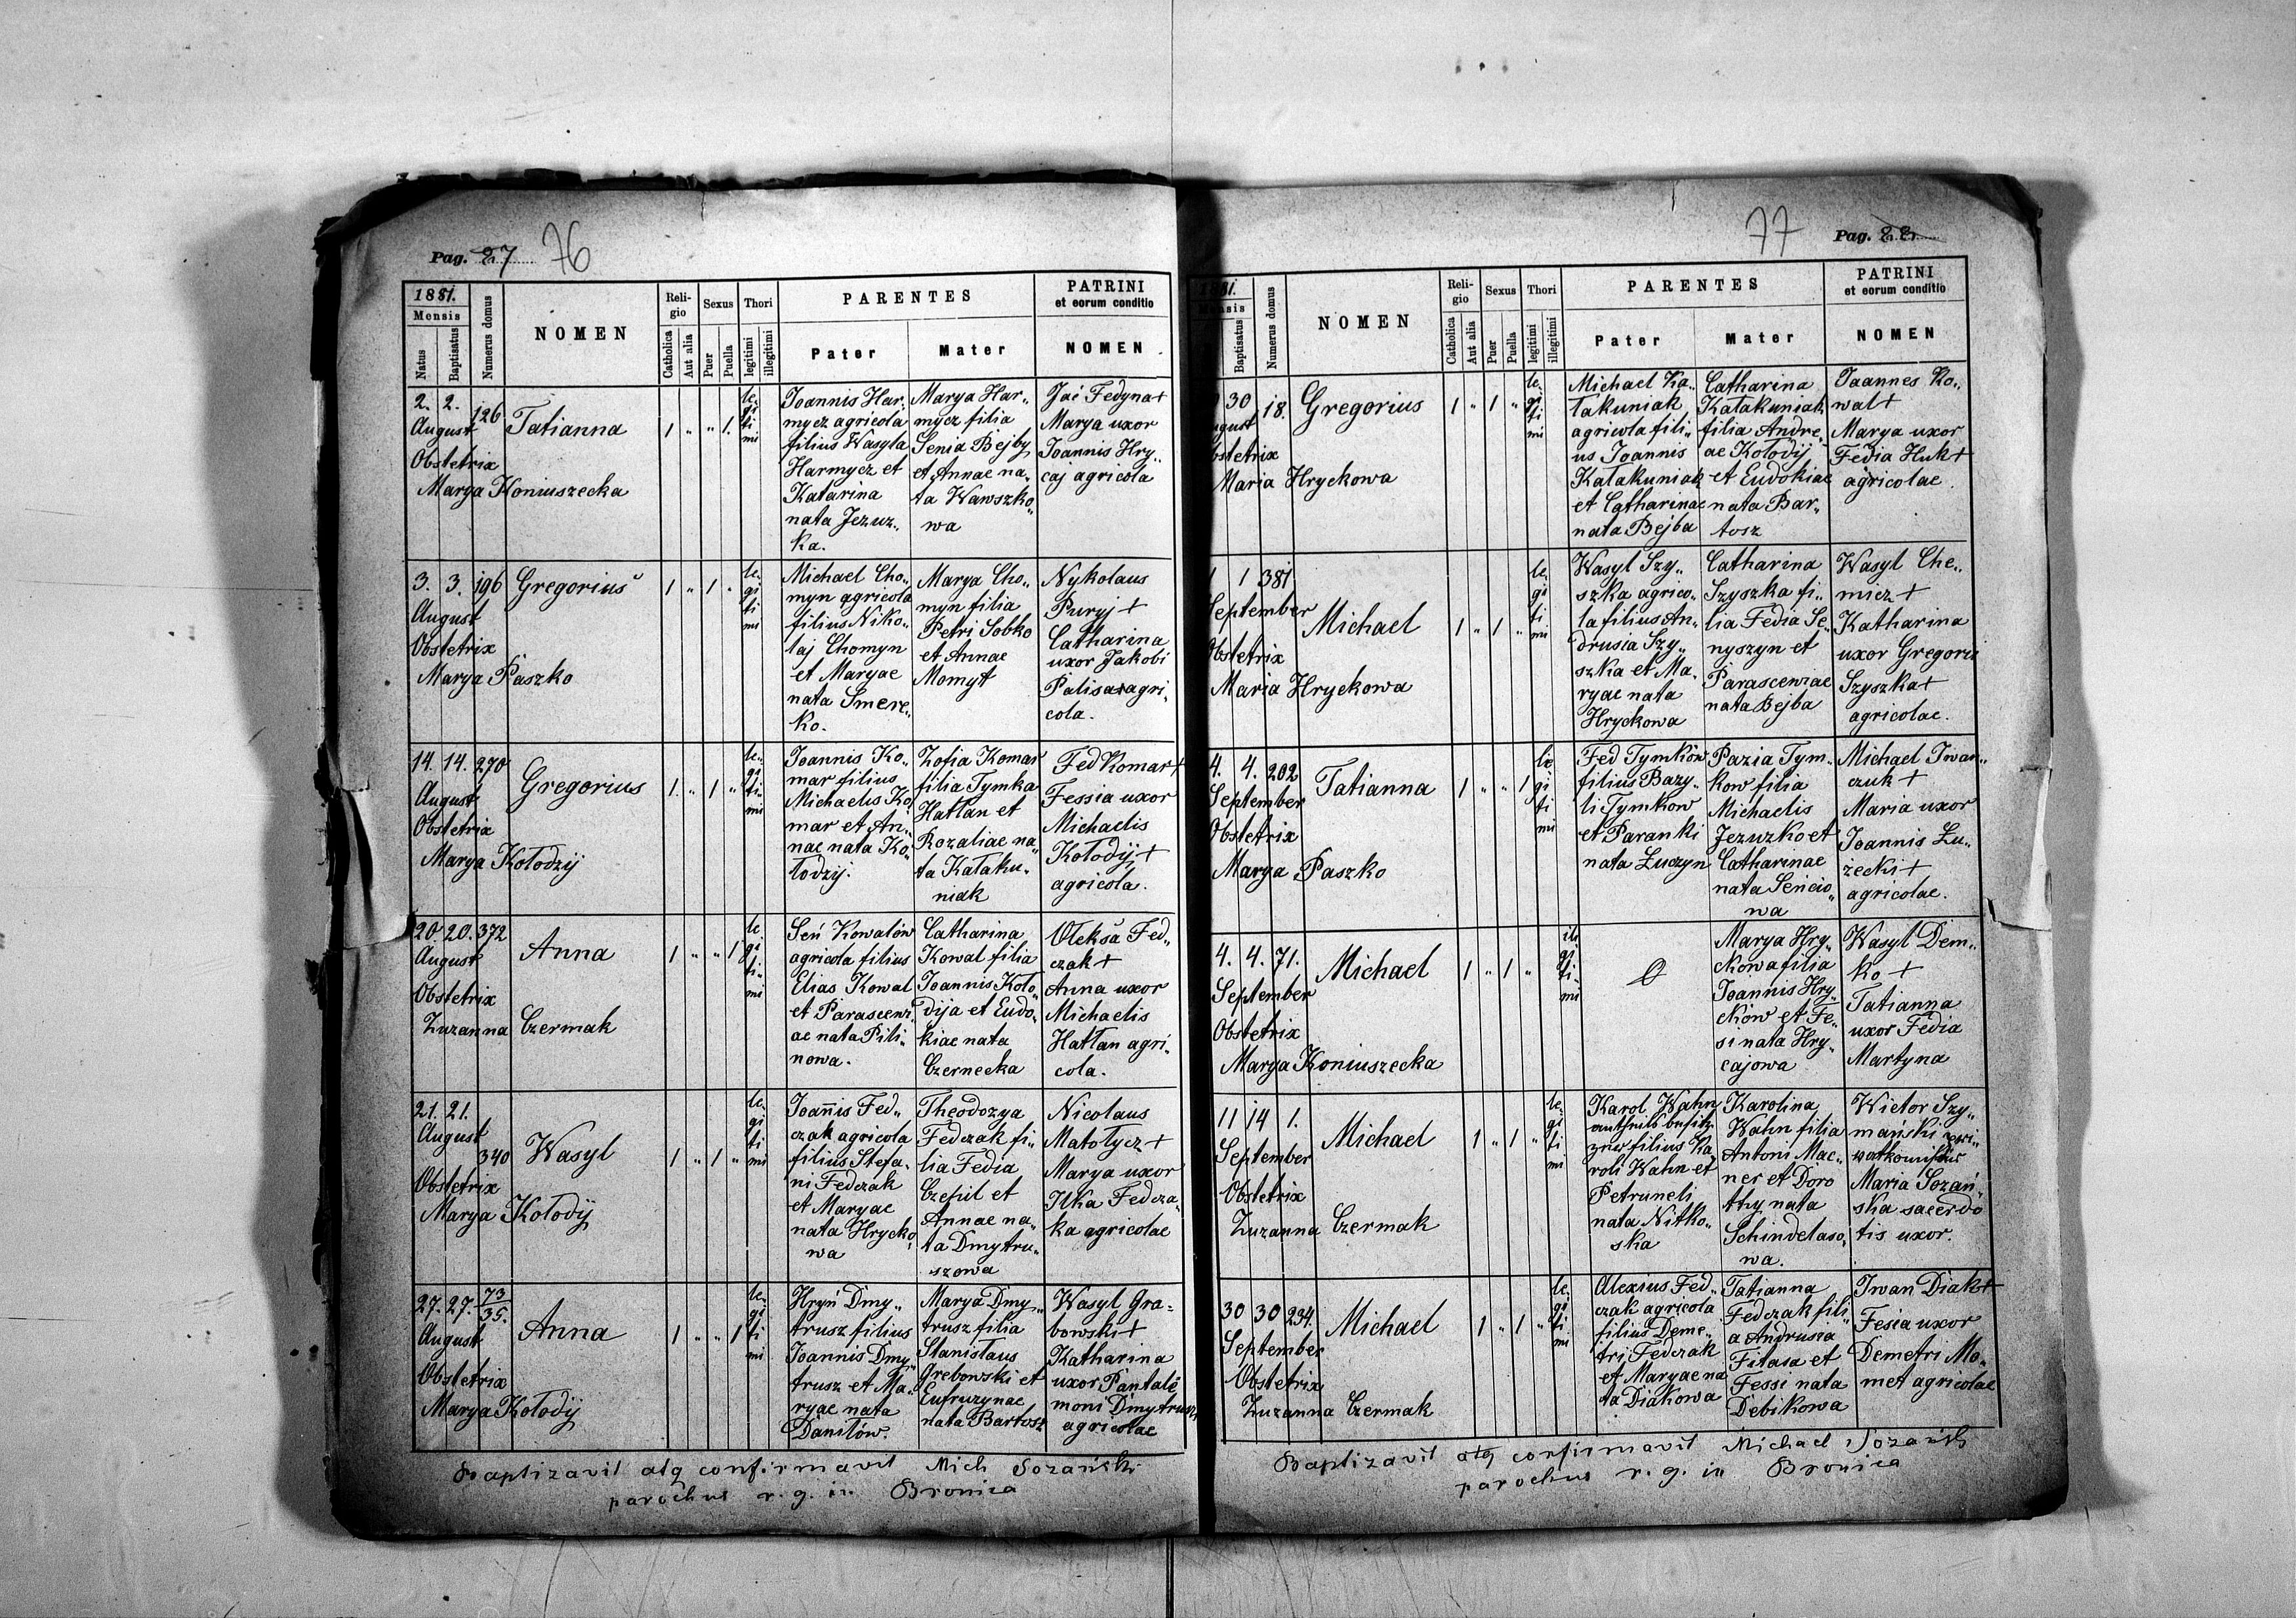 Pag. 27 76
1881.
Mensis
Natus
Baptisatus
Numerus domus
NOMEN
Religio
Catholica
Aut alia
Sexus
Puer
Puella
Thori
legitimi
illegitimi
PARENTES
Pater
Mater
PATRINI
et eorum conditio
NOMEN
2. 2. 126
August
Tatianna
Obstetrix
Marya Koniuszecka
1 " " 1.
le„
gi
ti
mi
Joannis Har„
mycz agricola
filius Wasyla
Harmycz et
Katarina
nata Jezuz„
ka.
Marya Har„
mycz filia
Senia Bejby
et Annae na„
ta Wawszko„
wa
Jać Fedyna +
Marya uxor
Joannis Hry„
caj agricola
3. 3. 196
August
Gregorius
Obstetrix
Marya Paszko
1 " 1 "
le„
gi
ti
mi
Michael Cho„
myn agricola
filius Niko„
laj Chomyn
et Maryae
nata Smere„
ko.
Marya Cho„
myn filia
Petri Sobko
et Annae
Momyt
Nykolaus
Puryj +
Catharina
uxor Jakobi
agri„
cola.
14. 14. 270
August
Gregorius
Obstetrix
Marya Kołodzij
1. " 1 "
le„
gi
ti„
mi
Joannis Ko„
mar filius
Michaelis Ko
mar et An„
nae nata Ko„
łodzij.
Zofia Komar
filia Tymka
Hatlan et
Rozaliae na„
ta Kałaku„
niak
Fed Komar +
Fessia uxor
Michaelis
Kołodij +
agricola.
20. 20. 372
August
Anna
Obstetrix
Zuzanna Czermak
1 " " 1
le
gi
ti„
mi
Seń Kowalów
agricola filius
Elias Kowal
et Parascevi
ae nata Pili„
nowa.
Catharina
Kowal filia
Joannis Koło„
dija et Eudo„
kiae nata
Czernecka
Oleksa Fed„
czak +
Anna uxor
Michaelis
Hatlan agri„
cola.
21. 21.
August
340
Wasyl
Obstetrix
Marya Kołodij
1 " 1 "
le„
gi
ti
mi
Joannis Fed„
czak agricola
filius Stefa„
ni Fedczak
et Maryae
nata Hrycko„
wa
Theodozya
Fedczak fi„
lia Fedia
Czepil et
Annae na„
ta Dmytru„
szowa
Nicolaus
Matołycz +
Marya uxor
Ilka Fedcza„
ka agricolae
27. 27. 73/35.
August
Anna
Obstetrix
Marya Kołodij
1 " " 1
le„
gi
ti
mi
Hryń Dmy„
trusz filius
Joannis Dmy„
trusz et Ma„
ryae nata
Daniłów.
Marya Dmy„
trusz filia
Stanislaus
Grebowski et
Eufruzynae
nata Bartosz
Wasyl Gra„
bowski +
Katharina
uxor Pantale
moni Dmytrusz
agricolae
Baptizavit atq confirmavit Mich Sozański
parochus r. g. in Bronica
77 Pag. 28
1881.
Mensis
Baptisatus
Numerus domus
NOMEN
Religio
Catholica
Aut alia
Sexus
Puer
Puella
Thori
legitimi
illegitimi
PARENTES
Pater
Mater
PATRINI
et eorum conditio
NOMEN
30 18.
ugust
Gregorius
bstetrix
Maria Hryckowa
1 " 1 "
le„
gi
ti
mi
Michael Ka„
łakuniak
agricola fili„
us Joannis
Kałakuniak
et Catharinae
nata Bejba
Catharina
Kałakuniak
filia Andre„
ae Kołodij
et Eudokiae
nata Bar„
tosz
Joannes Ko„
wal +
Marya uxor
Fedia Huk +
agricolae.
1 1 381
September
Michael
Obstetrix
Maria Hryckowa
1 " 1 "
le„
gi
ti
mi
Wasyl Szy„
szka agrico„
la filius An„
drusia Szy„
szka et Ma„
ryae nata
Hryckowa
Catharina
Szyszka fi„
lia Fedia Se„
nyszyn et
Parascewiae
nata Bejba
Wasyl Che„
micz +
Katharina
uxor Gregorii
Szyszka +
agricolae.
4. 4. 202
September
Tatianna
Obstetrix
Marya Paszko
1 " " 1
le
gi
ti
mi
Fed Tymków
filius Bazy„
li Tymkow
et Paranki
nata Łuczyn
Pazia Tym„
kow filia
Michaelis
Jezuzko et
Catharinae
nata Seńcio„
wa
Michael Iwan„
czuk +
Maria uxor
Joannis Łu„
żecki +
agricolae.
4. 4. 71.
September
Michael
Obstetrix
Marya Koniuszecka
1 " 1 "
ili
gi
ti„
mi
Ø
Marya Hry„
ckowa filia
Joannis Hry„
ckow et Fe„
si nata Hry„
cajowa
Wasyl Dem„
ko +
Tatianna
uxor Fedia
Martyna
11 14 1.
September
Michael
Obstetrix
Zuzanna Czermak
1 " 1 "
le„
gi
ti
mi
Karol Wahn
filius Ka„
roli Wahn et
Petruneli
nata Nitko„
ska
Karolina
Wahn filia
Antoni Mac„
ner et Doro
thy nata
Schindelaso„
wa.
Wictor Szy„
mański
Maria Sozań„
ska sacerdo
tis uxor.
30 30 234.
September
Michael
Obstetrix
Zuzanna Czermak
1 " 1 "
le„
gi
ti
mi
Alexius Fed„
czak agricola
filius Deme„
tri Fedczak
et Maryae na
ta Diakowa
Tatianna
Fedczak fili„
a Andrusia
Fitasa et
Fessi nata
Debikowa
Iwan Diak +
Fesia uxor
Demetri Mo„
met agricolae
Baptizavit atq confirmavit Michael Sozański
parochus r. g. in Bronica